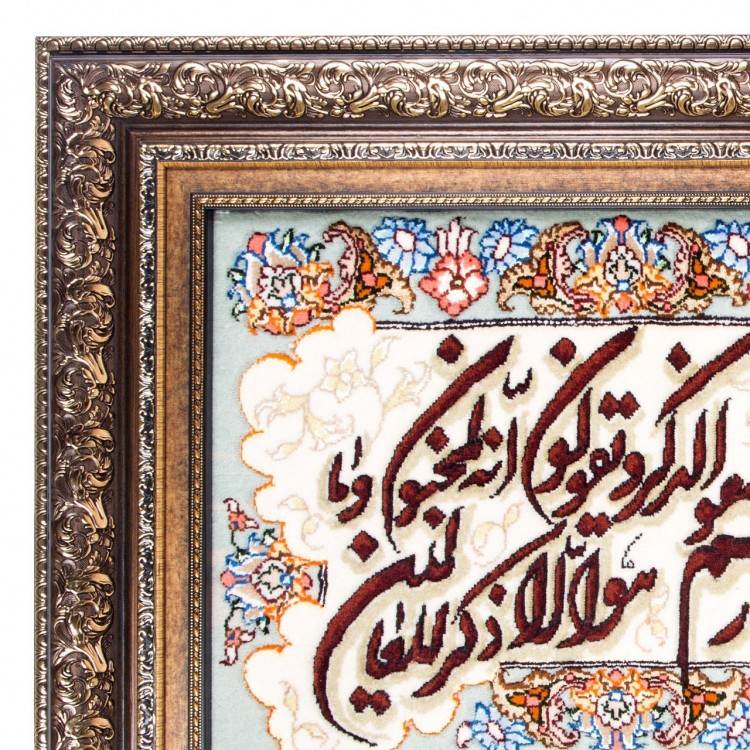 الذكر و يقولون انّه لمجنون وما
هو الّا ذكر للعالمين